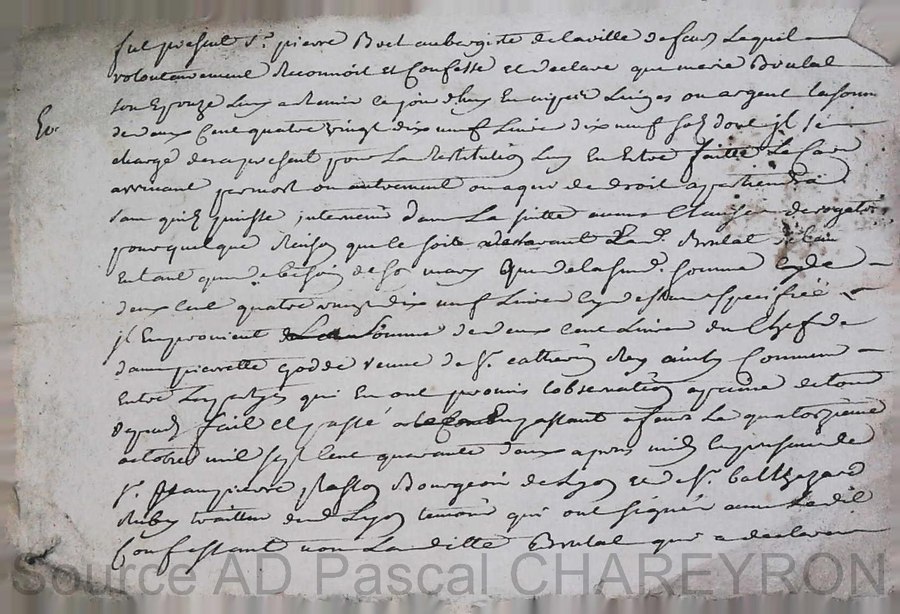 fut present Sr. pierre Boet aubergiste de la ville de feurs Lequel
volontairement Reconnoit et Confesse et declare que marie Brulat
son Epouze Luy a Remis ce jourdhuy En especes Linges ou argent la somme
de deux Cent quatre vingt dix neuf Livres dix neuf sols dont jl se
charge des a present pour La Restitution Luy En Etre faitte Le Cas
arrivant par mort ou autrement ou a qui de droit apartiendra
sans qu'il puisse jntervenir dans La suitte aucune Clause derogatoire
pour quelque Raison que ce soit declarant Lad. Brulat
En tant que de besoin de son mary que de lasusd. somme cy de
deux Cent quatre vingt dix neuf Livres cy dessus specifiée
jl En provient La somme de deux cent Livres du Chef de
dame pierrette godde veuve de Sr. catherin Rey ainsy Convenu
Entre Les partyes qui En ont promis L'observation a peine de tous
depends fait et passé a feurs Le quatorzieme
octobre mil sept Cent quarante deux apres midy En presence de
Sr. Jean pierre Bourgeois de Lyon et de Sr. balthazard
dud. Lyon temoins qui ont signé avec Ledit
Confessant non Laditte Brulat qui a declaré
Source AD Pascal CHAREYRON